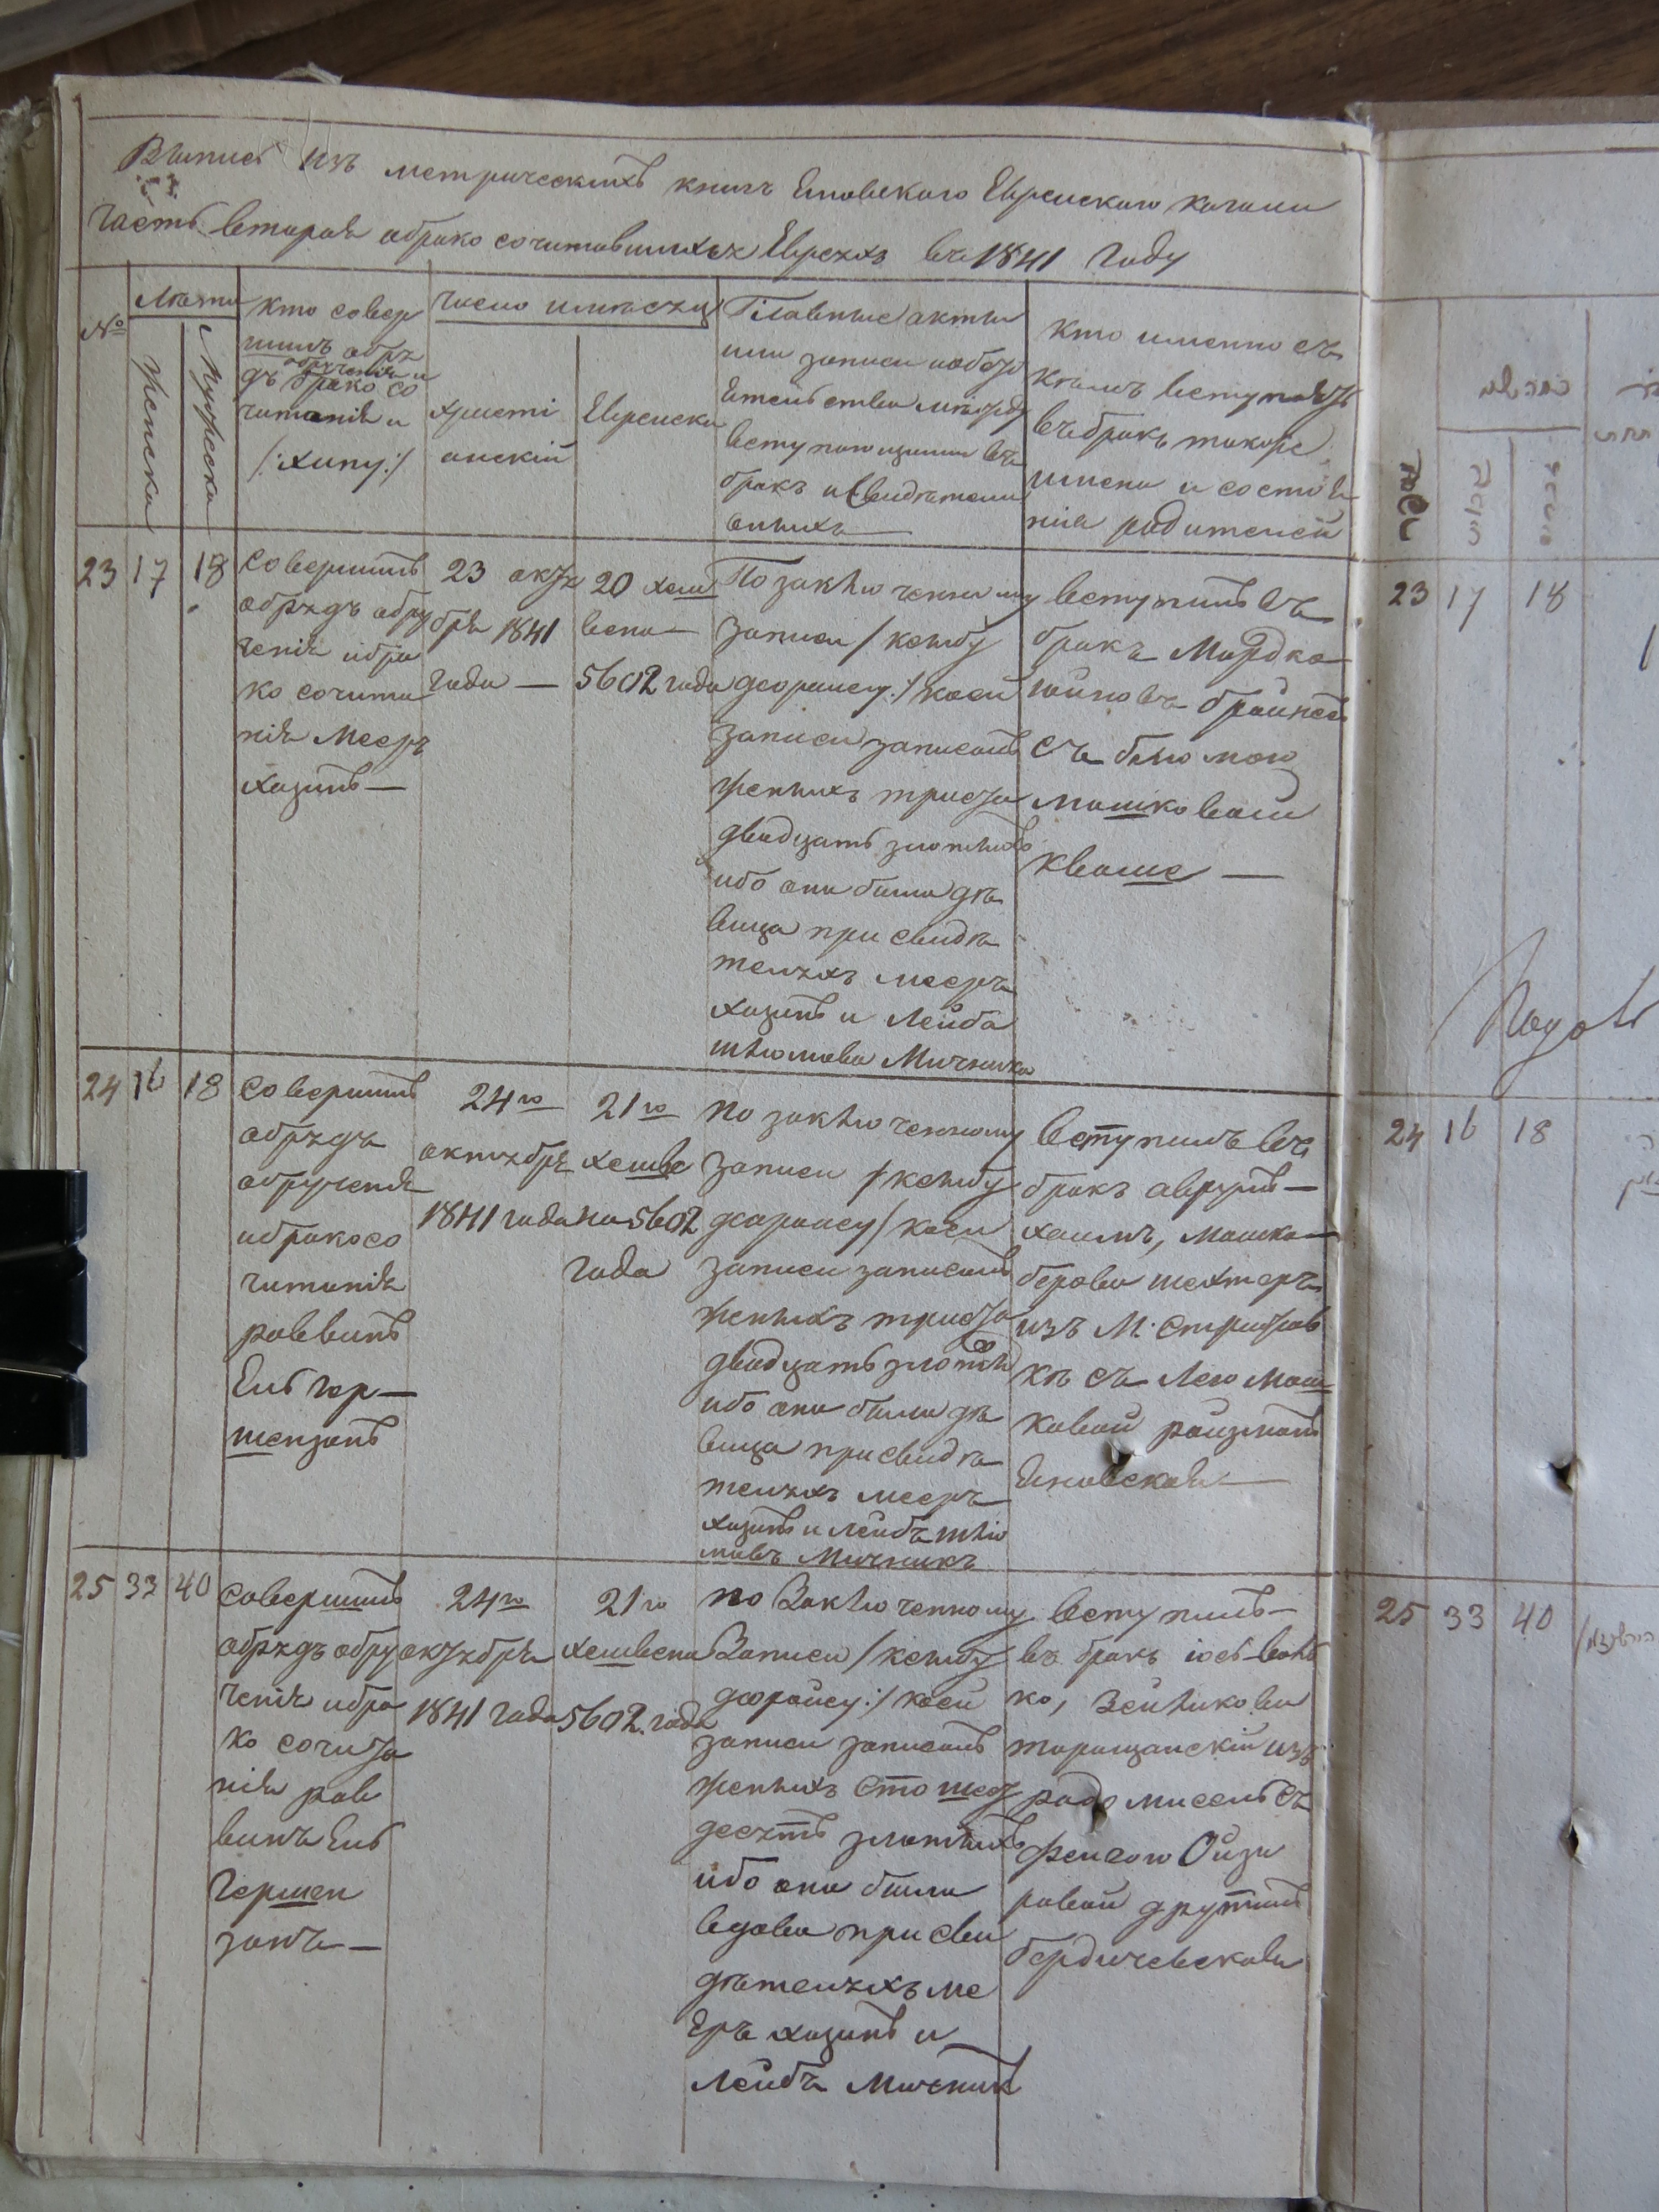 Выпись изъ метрическихъ книгъ Еновского Еврейскаго кагала
Часть вторая обрако сочитавшихся Евреяхъ въ 1841 Году
№
Лѣта
Женска
Мужеска
Кто совер
шилъ обря
дъ обрученія и
брако со
читанія и
/:хипу:/
Число имѣсяцъ
Христі
анскій
Еврейска
Главные акты
или записи иобяза
тельства между
вступающими въ
бракъ исвидѣтели
оныхъ
Кто именно съ
кѣмъ вступаетъ
въ бракъ также
имена и состоя
нія родителей
23 17 18
совершилъ
обрядъ обру
ченія ибра
ко сочита
нія Мееръ
хазинъ —
23 октя
бря 1841
года —
20 хеш
вена —
5602 года
По заключенному
записи / ксыбу
дораису:/ коей
записи записалъ
женихъ триста
двадцать злотыхъ
ибо она была дѣ
вица при свидѣ
теляхъ мееръ
хазинъ и Лейба
шлюмова Мичника
вступилъ въ
бракъ Мордко
съ
мошковой
24 16 18
совершилъ
обрядъ
обрученія
ибракосо
читанія
раввинъ
Ель гер—
шензонъ
24го
октября
1841 года
21го
хешве
на 5602
года
по заключенному
записи / ксыбу
дораису / коей
записи записалъ
женихъ триста
двадцать злотыхъ
ибо она была дѣ
вица при свидѣ
теляхъ мееръ
хазинъ и Лейбъ шлю
мовъ Мичникъ
вступилъ въ
бракъ аврумъ —
хаимъ, Мошко—
берова шехтеръ
изъ М. Стрижав
кѣ съ Лею Мош
ковой роизманъ
Еновская —
25 33 40
совершилъ
обрядъ обру
ченія ибра
ко сочита
нія рав
винъ Ель
Гершен
зонъ —
24го
октября
1841 года
21го
хешвена
5602 года
по Заключенному
Записи / ксыбу
дораису:/ коей
записи записалъ
женихъ сто шез
десятъ злотыхъ
ибо она была
вдова при сви
дѣтеляхъ ме
еръ хазинъ и
Лейбъ Мичникъ
вступилъ —
въ бракъ іось-воль
ко, Зейликова
таращанскій изъ
радомисель съ
фейгою Ойзи
ровой друтманъ
бердичевская
23 17 18
24 16 18
25 33 40